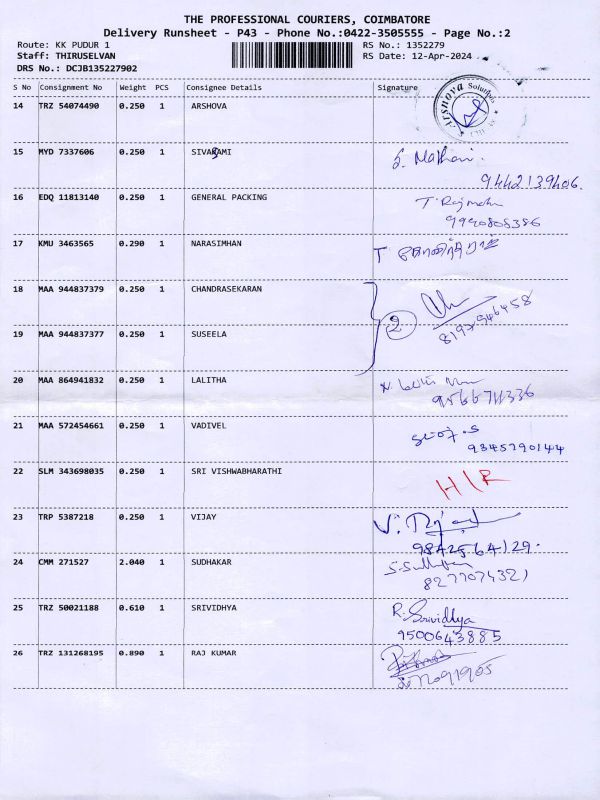 THE PROFESSIONAL COURIERS, COIMBATORE
Delivery Runsheet - P43 - Phone No.:0422-3505555 - Page No.:2
Route: KK PUDUR 1 RS No.: 1352279
Staff: THIRUSELVAN RS Date: 12-Apr-2024
DRS No.: DCJB135227902
S No Consignment No Weight PCS Consignee Details Signature
14 TRZ 54074490 0.250 1 ARSHOVA
15 MYD 7337606 0.250 1 SIVARAMI S. Mathavi.
9442139406.
16 EDQ 11813140 0.250 1 GENERAL PACKING
9940808386
17 KMU 3463565 0.290 1 NARASIMHAN T
18 MAA 944837379 0.250 1 CHANDRASEKARAN
2
19 MAA 944837377 0.250 1 SUSEELA
20 MAA 864941832 0.250 1 LALITHA
21 MAA 572454661 0.250 1 VADIVEL
9345790144
22 SLM 343698035 0.250 1 SRI VISHWABHARATHI H/R
23 TRP 5387218 0.250 1 VIJAY
9842564129.
24 CMM 271527 2.040 1 SUDHAKAR
8277074321
25 TRZ 50021188 0.610 1 SRIVIDHYA R. Srividhya
9500643885
26 TRZ 131268195 0.890 1 RAJ KUMAR